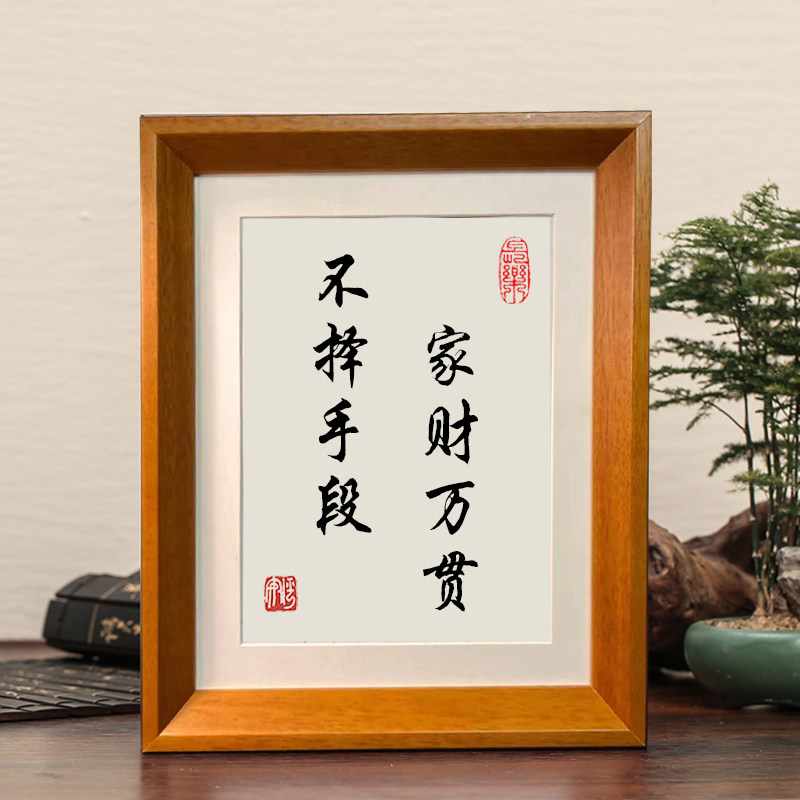 家财万贯
不择手段